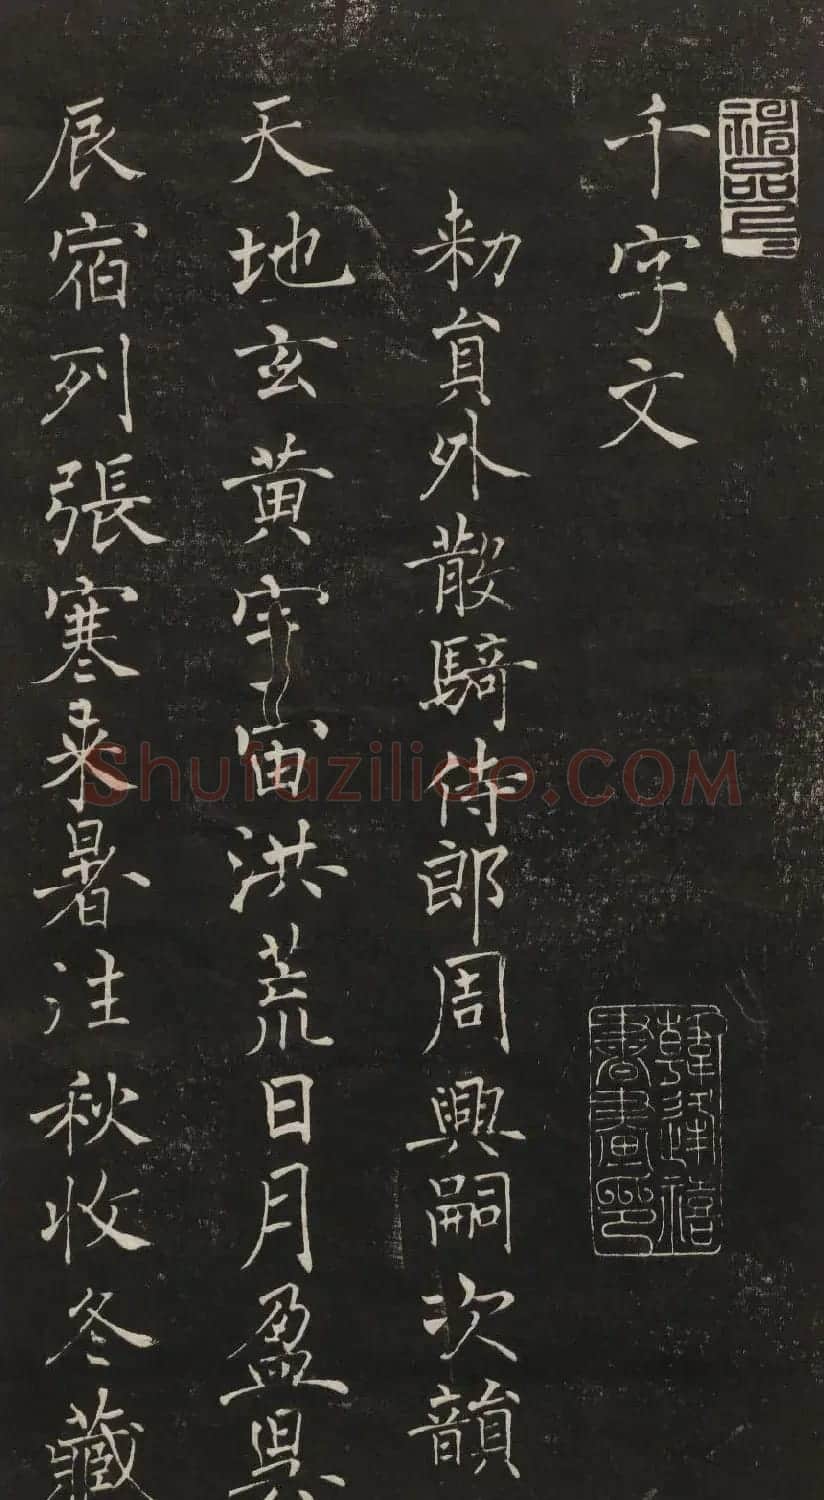 神品
千字文
勑貟外散騎侍郎周興嗣次韻
天地玄黄宇宙洪荒日月盈昃
辰宿列張寒来暑往秋收冬藏
韓逢禧
書畫印
Shufaziliao.COM